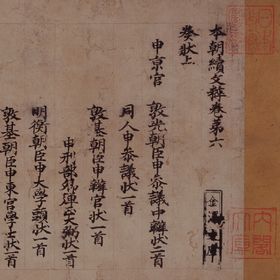 本朝續文粹卷第六
奏狀上
申京官 敦光朝臣申参議中辨狀二首
同人申参議狀一首
敦基朝臣申辨官狀一首
申刑部狀一首
明衡朝臣申大学頭狀一首
敦基朝臣申東宮学士狀一首
金澤文庫